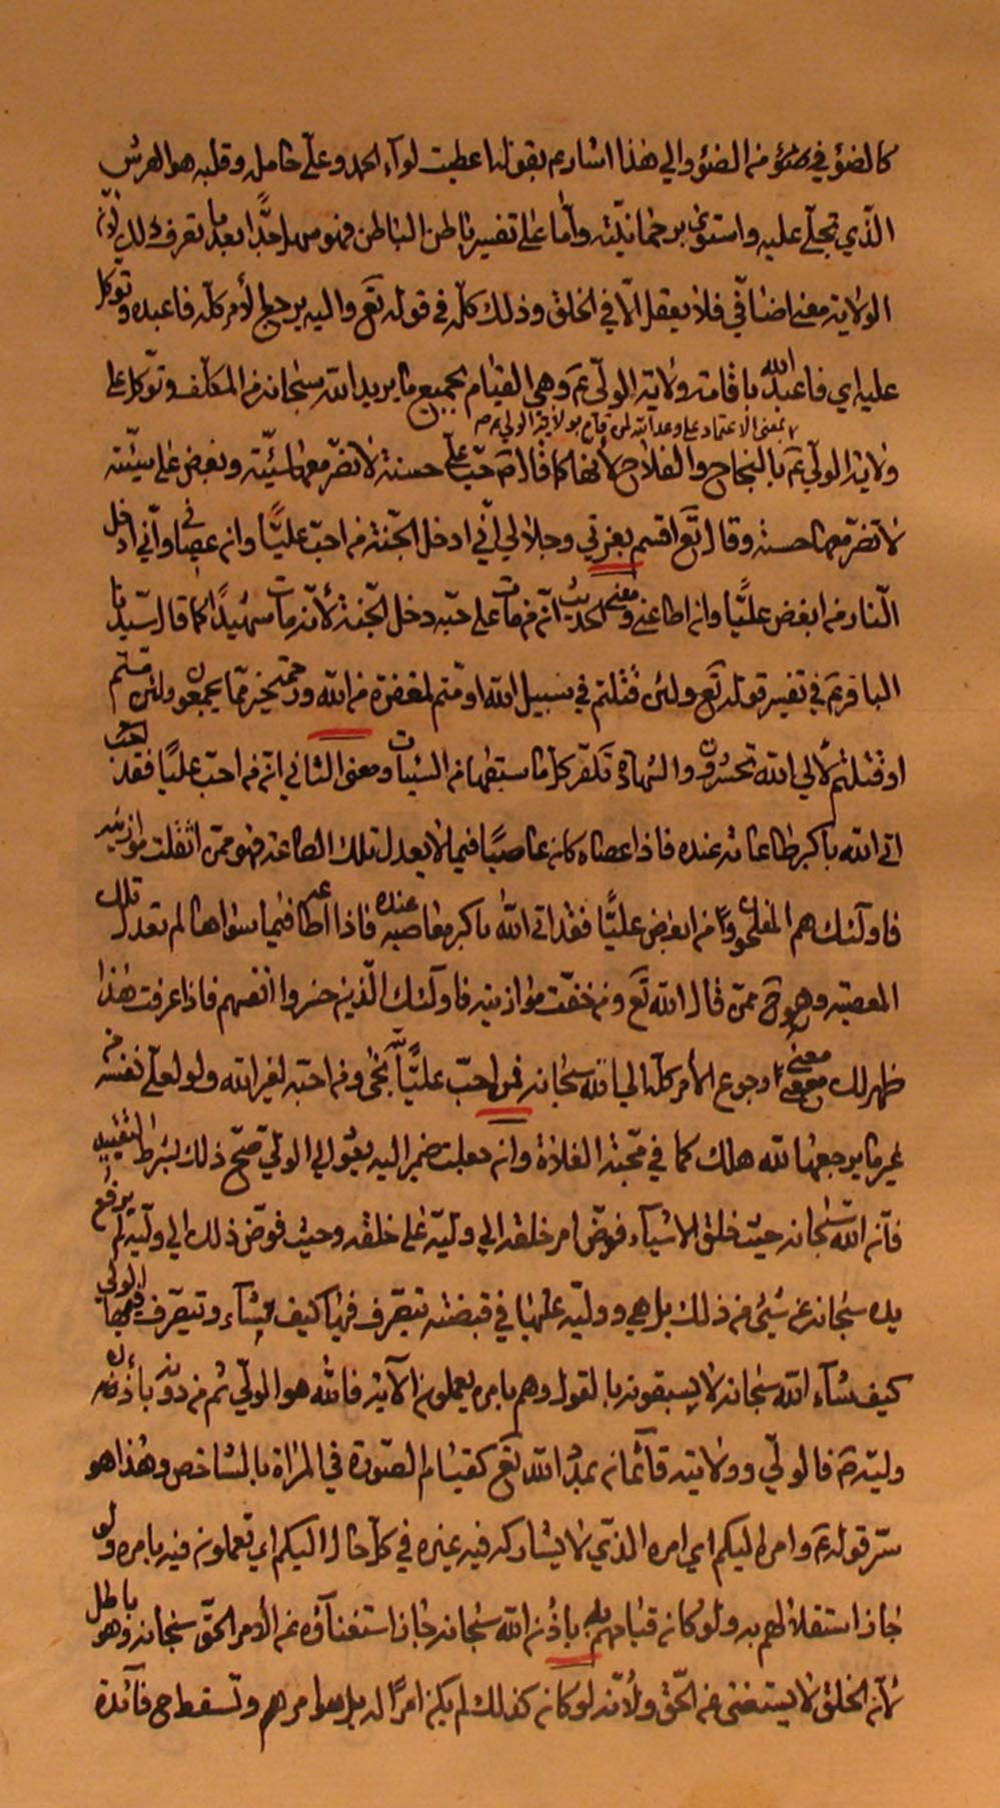 كالضؤ في ضؤ من الضؤ والي هذا اشار عم بقوله اعطيت لوآء الحمد وعليّ حامله وقلبه هو العرش
الّذي تجلّي عليه واستوي برحمانيّته وأمّا علي تفسير باطن الباطن فهو سهل جدًّا بعد ما تعرف ذلك لانّ
الولاية معني اضافي فلا يعقل الّا في الخلق وذلك كلّه في قوله تع واليه يرجع الأمر كلّه فاعبده وتوكل
عليه اي فاعبد الله باقامة ولاية الوليّ عم وهي القيام بجميع ما يريد الله سبحانه من المكلّف وتوكل علي
بمعني الاعتماد علي وعد الله لمن قام بولاية الولي عم
ولاية الوليّ عم بالنجاح والفلاح لأنها كما قال ص حبّ عليّ حسنة لا تضرّ معها سيّئة وبغض علي سيّئة
لا تضرّ معها حسنة وقال تع اقسم بعزتي وجلالي انّي ادخل الجّنة من احبّ عليًّا وان عصاني وانّي ادخل
النّار من ابغض عليًّا وان اطاعني ومعني الحديث انّه من مات علي حبّه دخل الجّنة لأنّه مات شهيدًا كما قال سيّدنا
الباقر عم في تفسير قوله تع ولئن قتلتم في سبيل الله او متم لمغفرة من الله ورحمة خير ممّا يجمعون ولئن متم
او قتلتم لألي الله تحشرون والشهادة تكفّر كل ما سبقها من السيّئات ومعني الثاني انّه من احبّ عليًّا فقد
اتي الله باكبر طاعاته عنده فاذا عصاه كان عاصيًا فيما لا يعدل تلك الطاعة فهو ممّن اثقلت موازينه
فاولئك هم المفلحون ومن ابغض عليًّا فقد اتي الله باكبر معاصيه عنده فاذا اطاعه فيما سواها لم تعدل تلك
المعصية وهو ح ممّن قال الله تع ومن خفّت موازينه فاولئك الّذين خسروا انفسهم فاذا عرفت هذا
ظهر لك معني رجوع الأمر كلّه الي الله سبحانه فمن احبّ عليًّا لله نجي ومن احبّه لغير الله ولو لعليّ نفسه من
غير ما يرجعها لله هلك كما في محبّة الغلاة وان جعلت ضمير اليه يعود الي الوليّ صحّ ذلك بشرط التقييد
فانّ الله سبحانه حيث خلق الاشيآء فوض امر خلقه الي وليّه علي خلقه وحيث فوّض ذلك الي وليّه لم يرفع
يده سبحانه عن شيئ من ذلك بل هي ووليّه عليها في قبضته يتصرّف فيها كيف يشآء ويتصرّف الولي فيها
كيف شآء الله سبحانه لا يسبقونه بالقول وهم بامره يعملون الآية فالله هو الوليّ ثم من دونه باذنه
وليّه ص فالوليّ وولايته قآئمان بمدد الله تع كقيام الصّورة في المرآة بالشاخص وهذا هو
سرّ قوله عم وامره اليكم اي امره الّذي لا يشاركه فيه غيره في كلّ حال اليكم اي تعملون فيه بامره ولو
جاز استقلالهم به ولو كان قيامهم به باذن الله سبحانه جاز استغنآؤه عن الأمر الحقّ سبحانه وهو باطل
لأن الخلق لا يستغني عن الحقّ ولأنّه لو كان كذلك لم يكن امرًا له بل هو امرهم وتسقط ح فآئدة